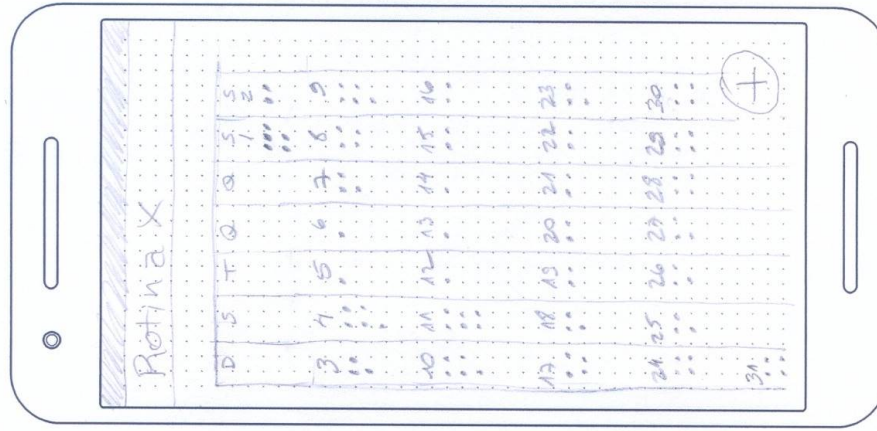 Rotina X
D S T Q Q S S
1 2
3 4 5 6 7 8 9
10 11 12 13 14 15 16
17 18 19 20 21 22 23
24 25 26 27 28 29 30
31
+